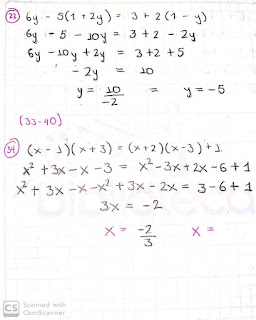 22) 6y - 5(1 + 2y) = 3 + 2(1 - y)
6y - 5 - 10y = 3 + 2 - 2y
6y - 10y + 2y = 3 + 2 + 5
- 2y = 10
y = 10/-2 = y = -5
(33-40)
34) (x - 1)(x + 3) = (x + 2)(x - 3) + 1.
x² + 3x - x - 3 = x² - 3x + 2x - 6 + 1
x² + 3x - x - x² + 3x - 2x = 3 - 6 + 1
3x = -2
x = -2/3 x =
CS Scanned with
CamScanner